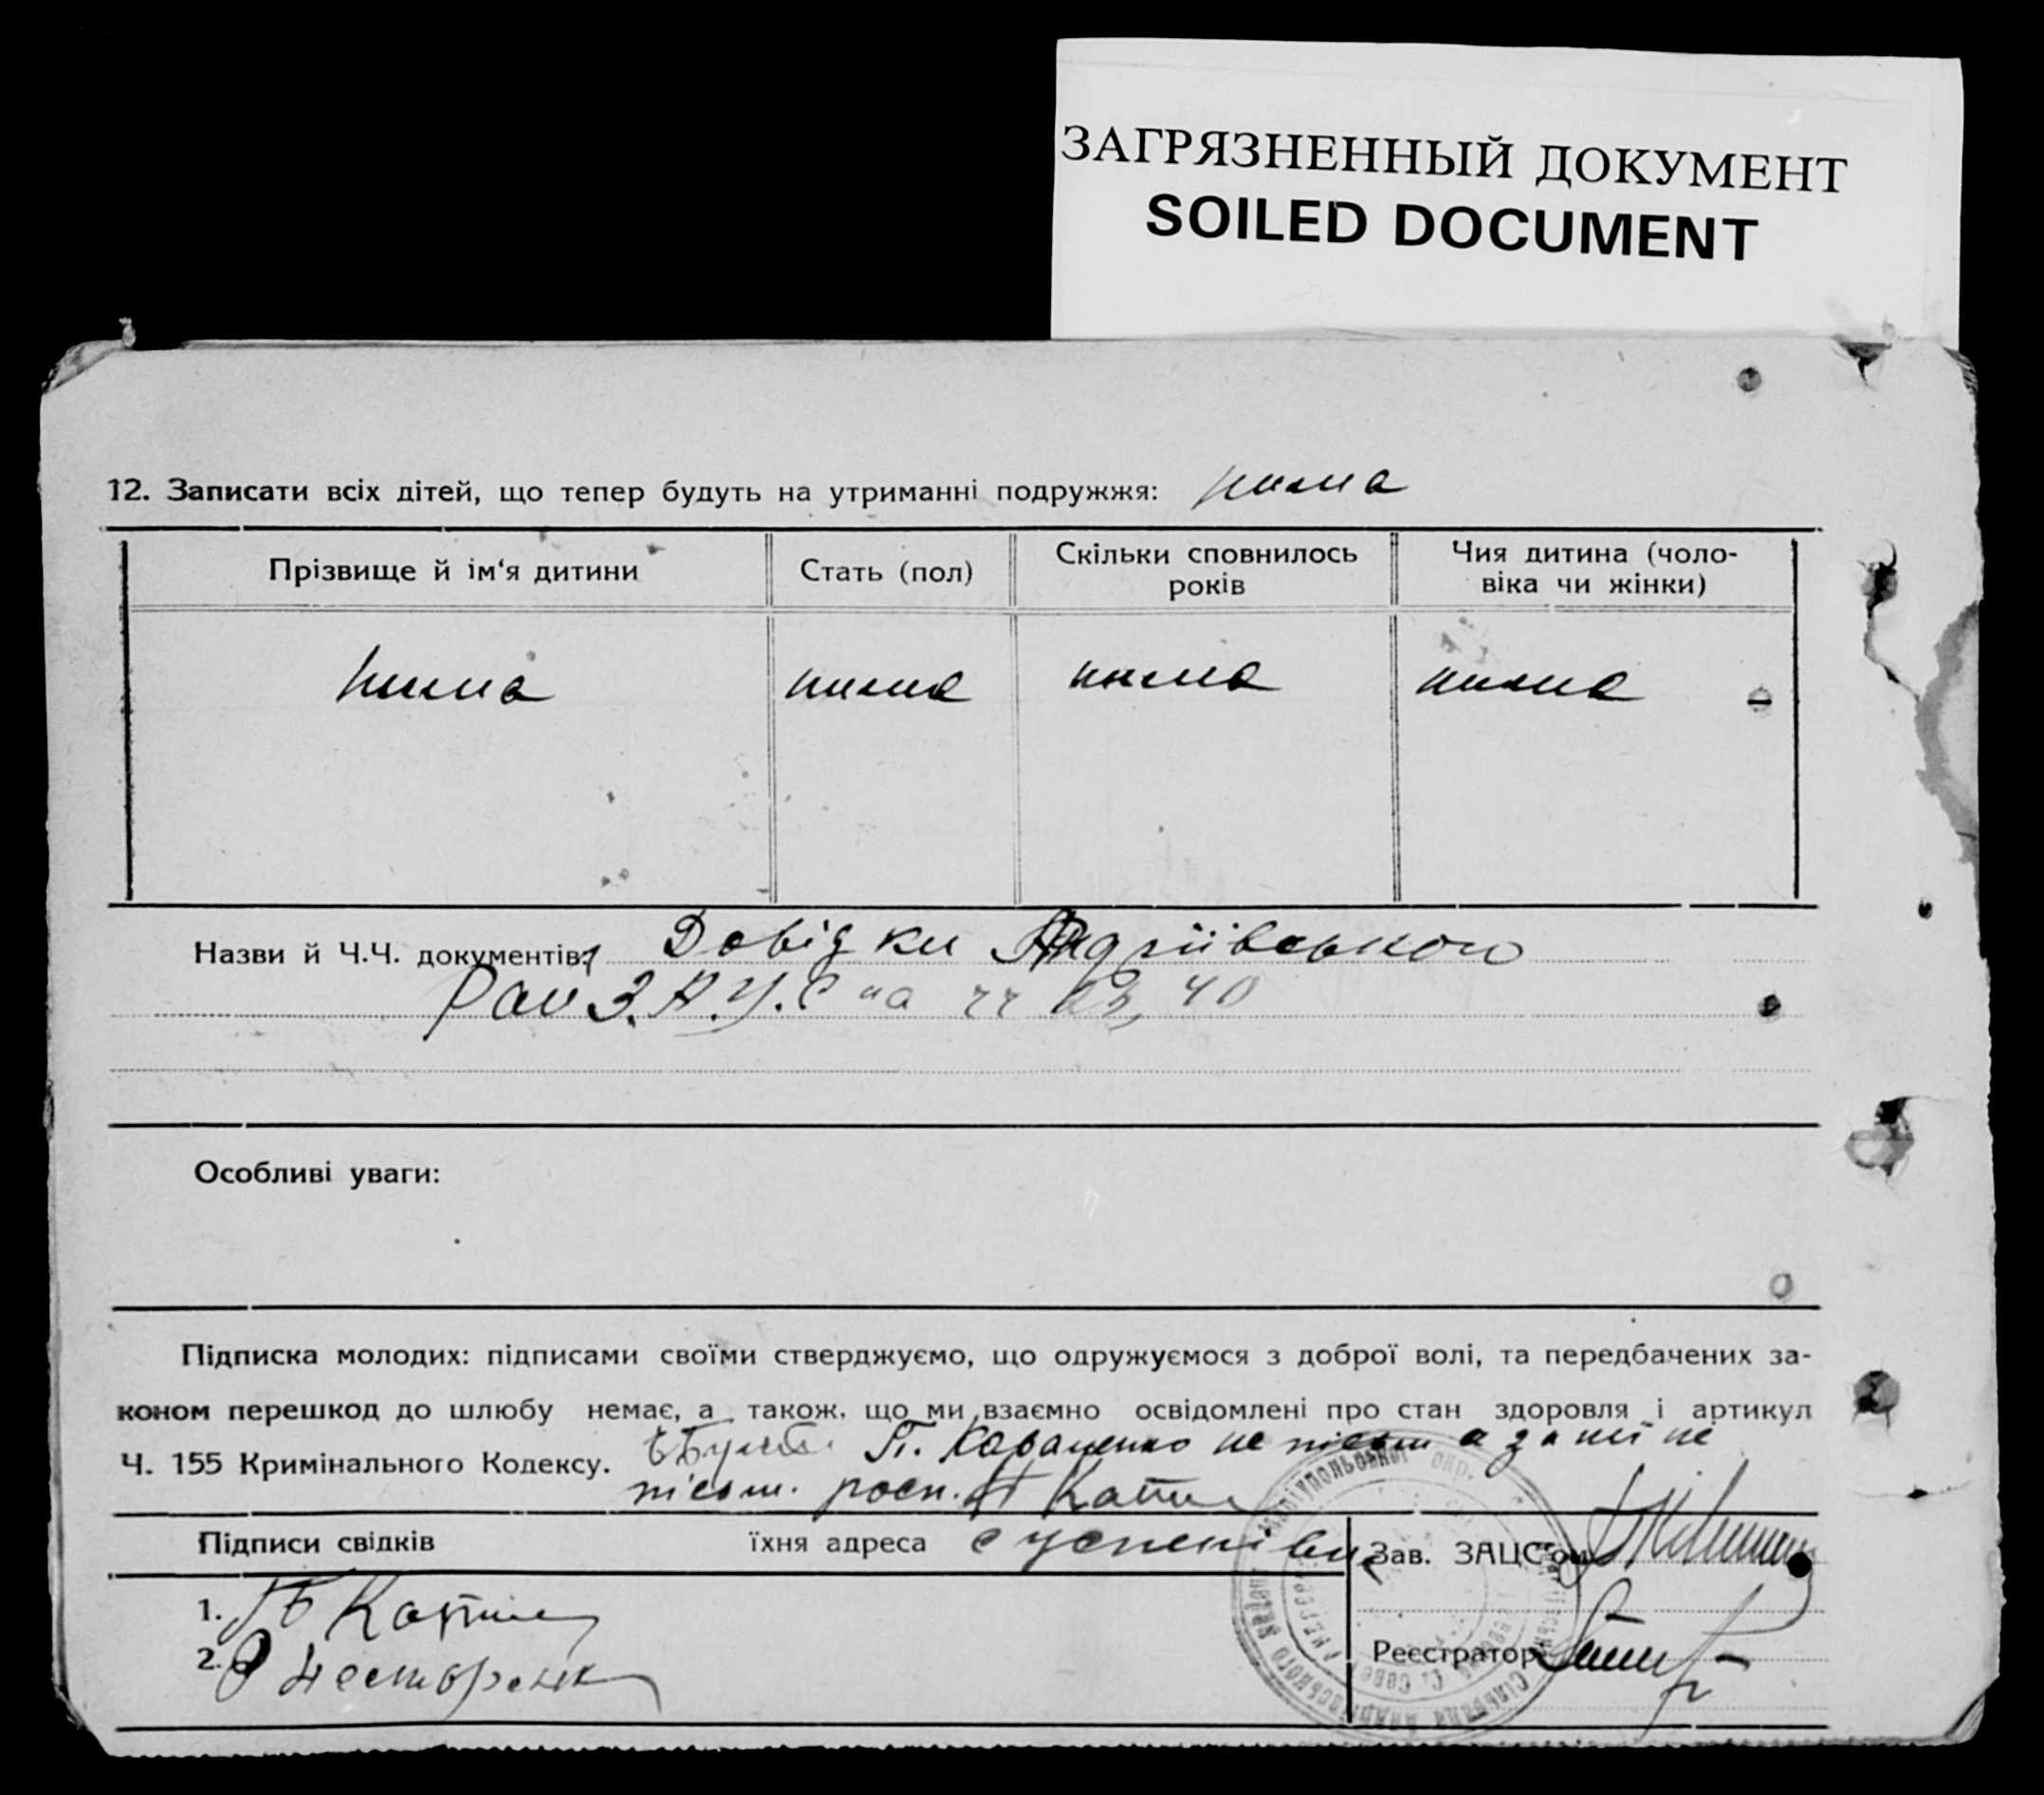 ЗАГРЯЗНЕННЫЙ ДОКУМЕНТ
SOILED DOCUMENT
12. Записати всіх дітей, що тепер будуть на утриманні подружжя: нима
Прізвище й ім‘я дитини
Стать (пол)
Скільки сповнилось
років
Чия дитина (чоло-
віка чи жінки)
нима нима нима нима
Назви й Ч.Ч. документів: Довідки Андріївського
Рай З.А.Г.С на чч 23, 40
Особливі уваги:
Підписка молодих: підписами своїми стверджуємо, що одружуємося з доброї волі, та передбачених за-
коном перешкод до шлюбу немає, а також, що ми взаємно освідомлені про стан здоровля і артикул
Ч. 155 Кримінального Кодексу. П. не а
росп.
Підписи свідків їхня адреса с успенівка
Зав. ЗАЦС'ом
1.
2. Нестеренк
Реєстратор